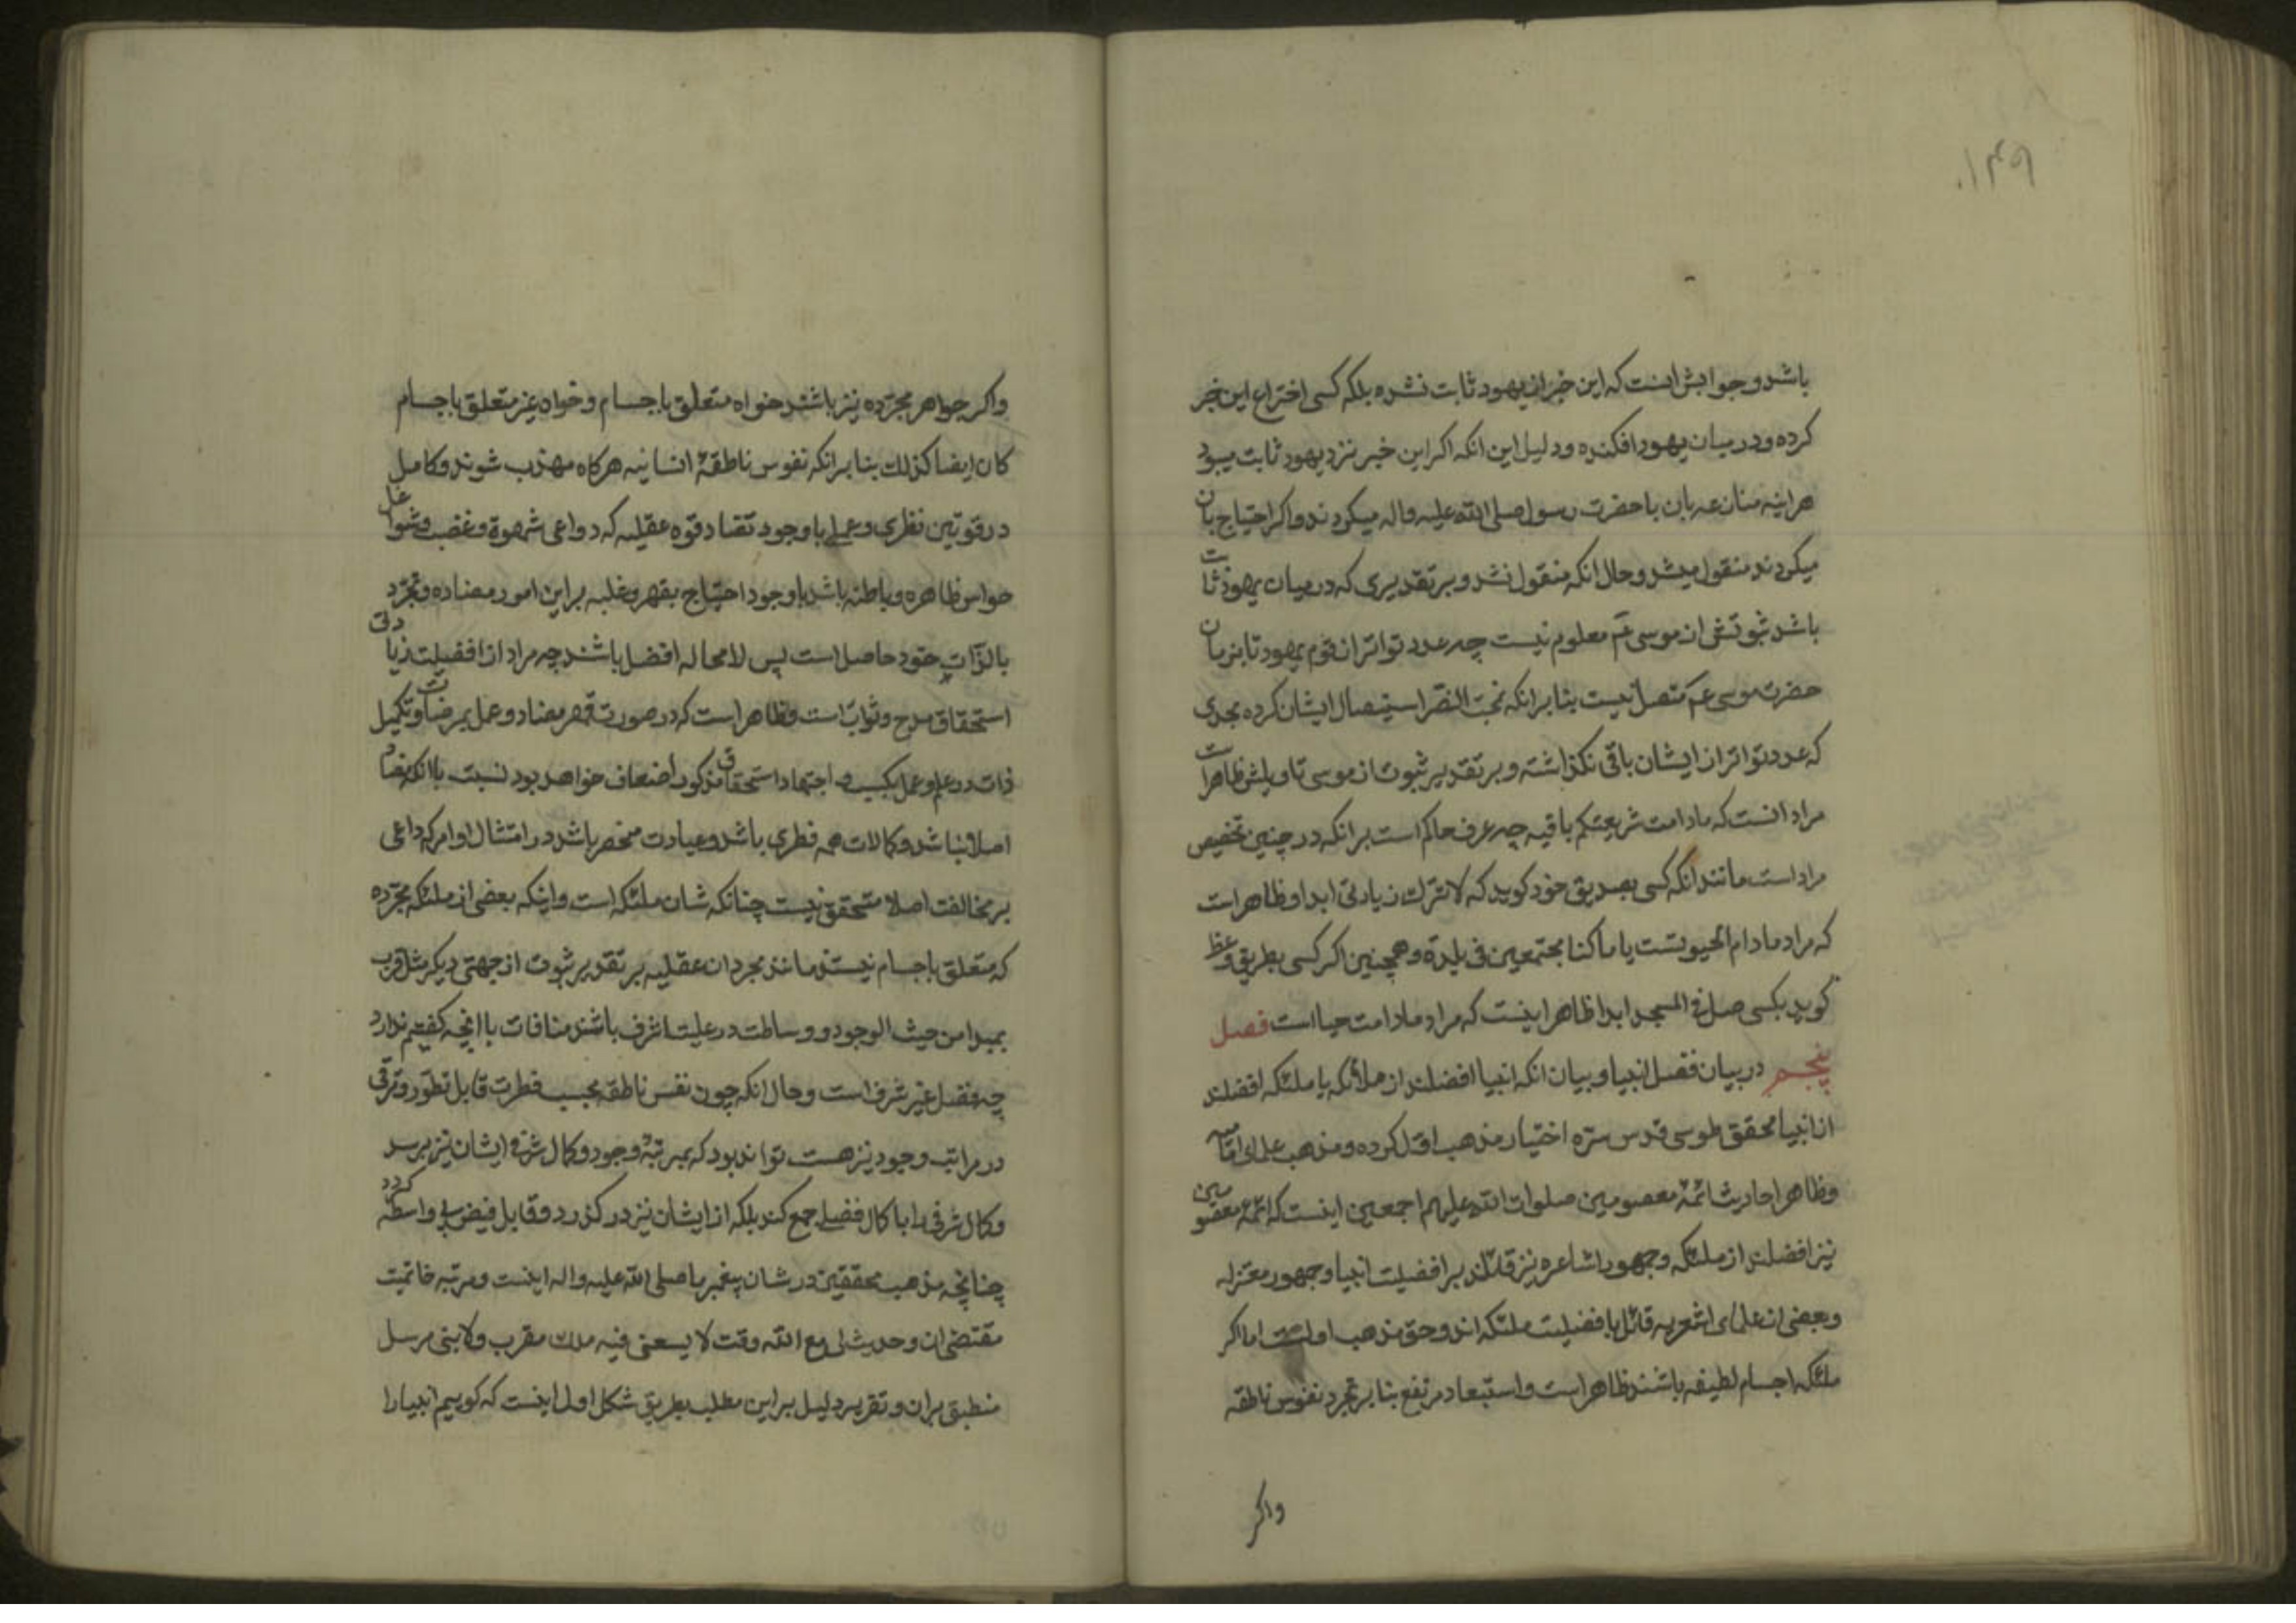 ۱۴۹
باشد و جوابش انست که این خبر از یهود ثابت نشده بلکه کسی اختراع این خبر
کرده و در میان یهود افکنده و دلیل این انکه اکر این خبر نزد یهود ثابت میبود
هراینه منازعه بان با حضرت رسول صلی الله علیه واله میکردند و اکر احتیاج بان
میکردند منقول میشد و حال انکه منقول نشد و بر تقدیری که در میان یهود ثابت
باشد ثبوتش از موسی عم معلوم نیست چه عدد تواتر از قوم یهود تا بزمان
حضرت موسی عم متصل نیست بنا بر انکه بخت النصر استیصال ایشان کرده بحدی
که عدد تواتر از ایشان باقی نکذاشته و بر تقدیر ثبوت از موسی تاویلش ظاهر است
مراد انست که مادامت شریعتکم باقیه چه عرف حاکم است بر انکه در چنین تخصیص
مراد است مانند انکه کسی بصدیق خود کوید که لا تترك زیادتی ابدا و ظاهر است
که مراد مادام الحیوتست یا ما کنا مجتمعین فی بلدة و همچنین اکر کسی بطریق وعظ
کوید بکسی صل فی المسجد ابدا ظاهر اینست که مراد مادامت حیا است فصل
پنجم در بیان فضل انبیا و بیان انکه انبیا افضلند از ملائکه یا ملئکه افضلند
از انبیا محقق طوسی قدس سره اختیار مذهب اول کرده و مذهب علمای امامیه
و ظاهر احادیث ائمهٔ معصومین صلوات الله علیهم اجمعین اینست که ائمهٔ معصومین
نیز افضلند از ملئکه و جمهور اشاعره نیز قائلند بر افضلیت انبیا و جمهور معتزله
و بعضی از علمای اشعریه قائل بافضلیت ملئکه اند و حق مذهب اولست اما اکر
ملئکه اجسام لطیفه باشند ظاهر است و استبعاد مرتفع بنا بر تجرد نفوس ناطقه
واکر
واکر جواهر مجرّده نیز باشند خواه متعلق باجسام و خواه غیر متعلق باجسام
کان ایضا کذلك بنا بر انکه نفوس ناطقهٔ انسانیه هرکاه مهذب شوند و کامل
در قوتین نظری و عملی با وجود تضاد قوه عقلیه که دواعی شهوة و غضب و شواغل
حواس ظاهره و باطنه باشد با وجود احتیاج بقهر و غلبه بر این امور مضاده و تجرّد
بالذّات خود حاصل است پس لامحاله افضل باشند چه مراد از افضلیت زیادتی
استحقاق مدح و ثواب است و ظاهر است که در صورت قهر مضاد و عمل بمرضات و تکمیل
ذات در علم و عمل بکسب و اجتهاد استحقاق مذکور اضعاف خواهد بود نسبت باانکه مضاد
اصلا نباشد و کمالات همه فطری باشد و عبادت منحصر باشد در امتثال اوامر که داعی
بر مخالفت اصلا متحقق نیست چنانکه شان ملئکه است و اینکه بعضی از ملئکه مجرّده
که متعلق باجسام نیستند مانند مجردات عقلیه بر تقدیر ثبوت از جهتی دیکر مثل قرب
بمبدا من حیث الوجود و وساطت در علیت اشرف باشند منافات با انچه کفتیم ندارد
چه فضل غیر شرف است و حال انکه چون نفس ناطقه بحسب فطرت قابل تطور و ترقی
در مراتب وجود نیز هست تواند بود که بمرتبهٔ وجود و کمال شرفی ایشان نیز برسد
و کمال شرفی را با کمال فضلی جمع کند بلکه از ایشان نیز در کذرد و قابل فیض بی واسطه کردد
چنانچه مذهب محققین در شان پیغمبر ما صلی الله علیه واله اینست و مرتبه خاتمیت
مقتضی ان و حدیث لی مع الله وقت لا یسعنی فیه ملك مقرب ولا نبی مرسل
منطبق بران و تقریر دلیل بر این مطلب بطریق شکل اول اینست که کوییم انبیا را